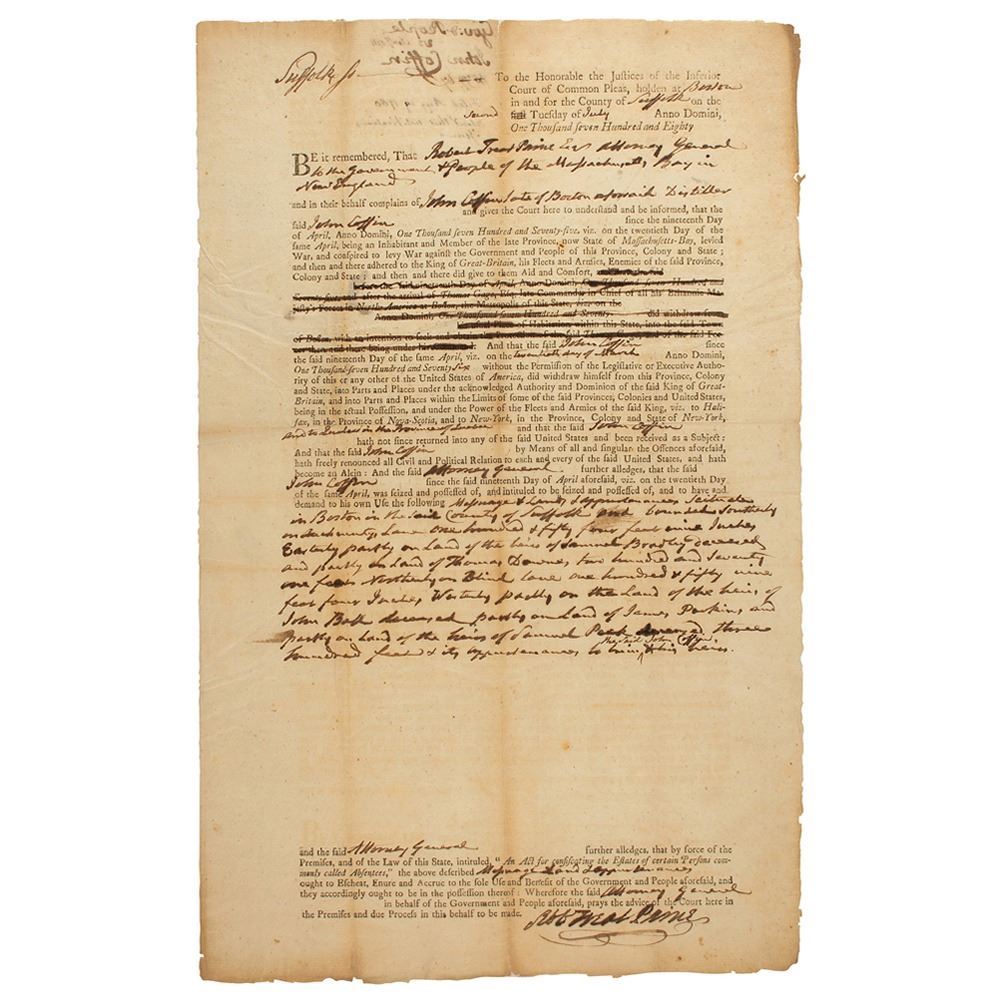 Suffolk ss
To the Honorable the Justices of the Inferior
Court of Common Pleas, holden at Boston
in and for the County of Suffolk on the
second Tuesday of July Anno Domini,
One Thousand seven Hundred and Eighty
BE it remembered, That Robert Treat Paine Esqr Attorney General
to the Government & People of the Massachusetts Bay in
New England
and in their behalf complains of John Coffin late of Boston aforesaid Distiller
and gives the Court here to understand and be informed, that the
said John Coffin since the nineteenth Day
of April, Anno Domini, One Thousand seven Hundred and Seventy-five, viz. on the twentieth Day of the
same April, being an Inhabitant and Member of the late Province, now State of Massachusetts-Bay, levied
War, and conspired to levy War against the Government and People of this Province, Colony and State;
and then and there adhered to the King of Great-Britain, his Fleets and Armies, Enemies of the said Province,
Colony and State; and then and there did give to them Aid and Comfort,
since the said nineteenth Day of April, Anno Domini, One Thousand seven Hundred and
Seventy-five and after the arrival of Thomas Gage, Esq; late Commander in Chief of all his Britannic Ma-
jesty's Forces in North America at Boston, the Metropolis of this State, viz. on the
Anno Domini, One Thousand seven Hundred and Seventy- did withdraw from
usual Place of Habitation within this State, into the said Town
of Boston, with an intention to seek and obtain the Protection of the said Thomas Gage and of the said For-
ces then and there being under his And that the said John Coffin since
the said nineteenth Day of the same April, viz. on the twentieth day of March Anno Domini,
One Thousand seven Hundred and Seventy Six without the Permission of the Legislative or Executive Autho-
rity of this or any other of the United States of America, did withdraw himself from this Province, Colony
and State, into Parts and Places under the acknowledged Authority and Dominion of the said King of Great-
Britain, and into Parts and Places within the Limits of some of the said Provinces, Colonies and United States,
being in the actual Possession, and under the Power of the Fleets and Armies of the said King, viz. to Hali-
fax, in the Province of Nova-Scotia, and to New-York, in the Province, Colony and State of New-York,
and to Quebeck in the Province of Quebec and that the said John Coffin
hath not since returned into any of the said United States and been received as a Subject:
And that the said John Coffin by Means of all and singular the Offences aforesaid,
hath freely renounced all Civil and Political Relation to each and every of the said United States, and hath
become an Alein: And the said Attorney General further alledges, that the said
John Coffin since the said nineteenth Day of April aforesaid, viz. on the twentieth Day
of the same April, was seized and possessed of, and intituled to be seized and possessed of, and to have and
demand to his own Use the following Messuage & Land & Appurtenances Scituate
in Boston in the said County of Suffolk and bounded Southerly
on Lane one hundred & fifty four feet nine Inches
Easterly partly on Land of the heirs of Samuel Bradley deceased
and partly on Land of Thomas Downes two hundred and seventy
one feet Northerly on Blind Lane one hundred & fifty nine
feet four Inches Westerly partly on the Land of the heirs of
John Ball deceased partly on Land of James Perkins and
partly on Land of the heirs of Samuel Peck deceased three
hundred feet & its appurtenances to him the said John Coffin & his heirs.
and the said Attorney General further alledges, that by force of the
Premises, and of the Law of this State, intituled, "An Act for confiscating the Estates of certain Persons com-
monly called Absentees," the above described Messuage Land & appurtenances
ought to Escheat, Enure and Accrue to the sole Use and Benefit of the Government and People aforesaid, and
they accordingly ought to be in the possession thereof: Wherefore the said Attorney General
in behalf of the Government and People aforesaid, prays the advice of the Court here in
the Premises and due Process in this behalf to be made.
Rob Treat Paine